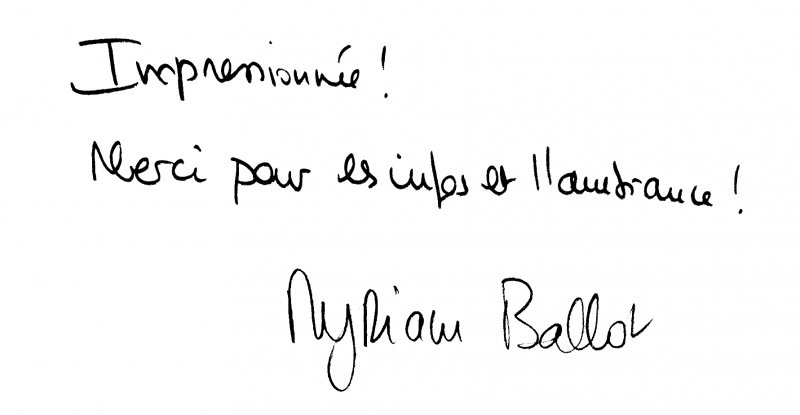 Impressionnée !
Merci pour les infos et l'ambiance !
Myriam Ballot